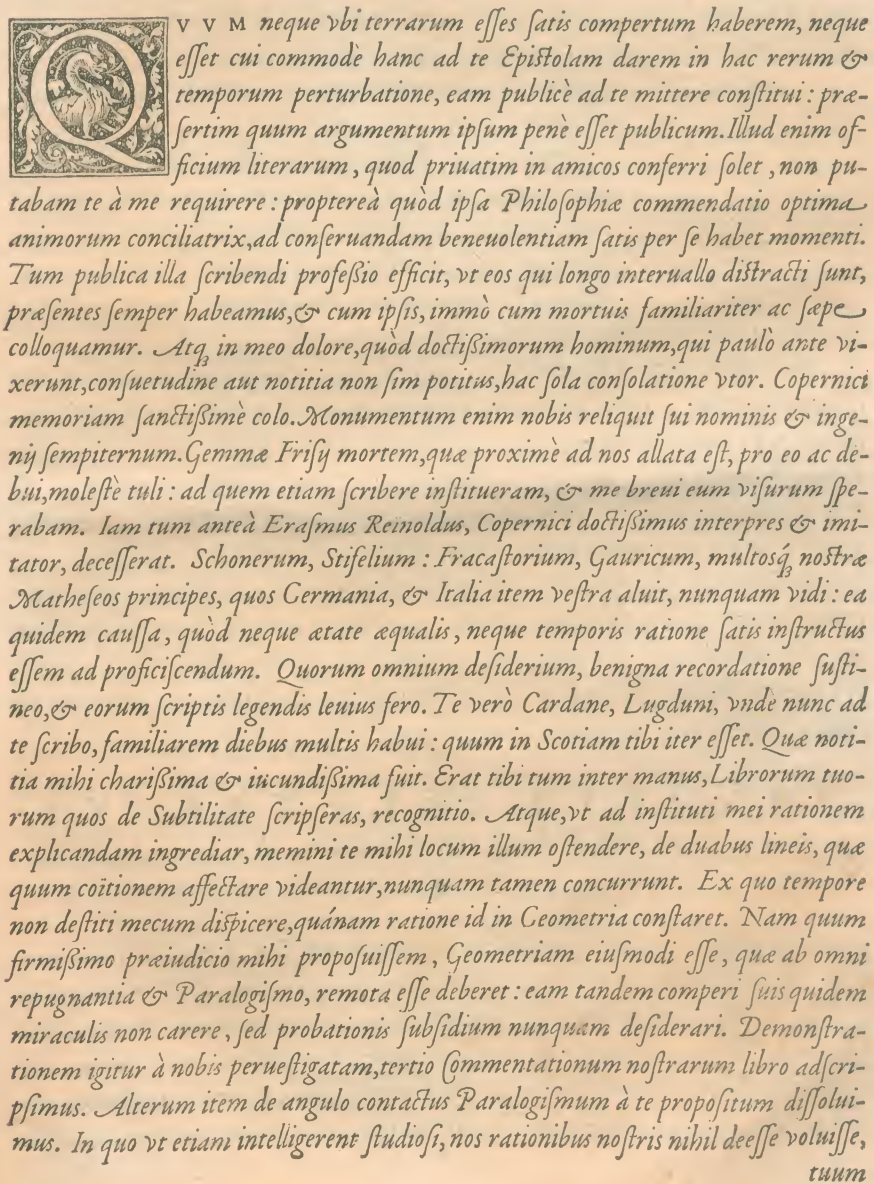 QVVM neque vbi terrarum eſſes ſatis compertum haberem, neque
eſſet cui commodè hanc ad te Epiſtolam darem in hac rerum &
temporum perturbatione, eam publicè ad te mittere conſtitui: præ-
ſertim quum argumentum ipſum penè eſſet publicum. Illud enim of-
ficium literarum, quod priuatim in amicos conferri ſolet, non pu-
tabam te à me requirere: proptereà quòd ipſa Philoſophiæ commendatio optima
animorum conciliatrix, ad conſeruandam beneuolentiam ſatis per ſe habet momenti.
Tum publica illa ſcribendi profeſſio efficit, vt eos qui longo interuallo diſtracti ſunt,
præſentes ſemper habeamus, & cum ipſis, immò cum mortuis familiariter ac ſæpe
colloquamur. Atq; in meo dolore, quòd doctiſſimorum hominum, qui paulò ante vi-
xerunt, conſuetudine aut notitia non ſim potitus, hac ſola conſolatione vtor. Copernici
memoriam ſanctiſſimè colo. Monumentum enim nobis reliquit ſui nominis & inge-
nij ſempiternum. Gemmæ Friſij mortem, quæ proximè ad nos allata eſt, pro eo ac de-
bui, moleſtè tuli: ad quem etiam ſcribere inſtitueram, & me breui eum viſurum ſpe-
rabam. Iam tum anteà Eraſmus Reinoldus, Copernici doctiſſimus interpres & imi-
tator, deceſſerat. Schonerum, Stifelium: Fracaſtorium, Gauricum, multosq́; noſtræ
Matheſeos principes, quos Germania, & Italia item veſtra aluit, nunquam vidi: ea
quidem cauſſa, quòd neque ætate æqualis, neque temporis ratione ſatis inſtructus
eſſem ad proficiſcendum. Quorum omnium deſiderium, benigna recordatione ſuſti-
neo, & eorum ſcriptis legendis leuius fero. Te verò Cardane, Lugduni, vnde nunc ad
te ſcribo, familiarem diebus multis habui: quum in Scotiam tibi iter eſſet. Quæ noti-
tia mihi chariſſima & iucundiſſima fuit. Erat tibi tum inter manus, Librorum tuo-
rum quos de Subtilitate ſcripſeras, recognitio. Atque, vt ad inſtituti mei rationem
explicandam ingrediar, memini te mihi locum illum oſtendere, de duabus lineis, quæ
quum coïtionem affectare videantur, nunquam tamen concurrunt. Ex quo tempore
non deſtiti mecum diſpicere, quánam ratione id in Geometria conſtaret. Nam quum
firmiſſimo præiudicio mihi propoſuiſſem, Geometriam eiuſmodi eſſe, quæ ab omni
repugnantia & Paralogiſmo, remota eſſe deberet: eam tandem comperi ſuis quidem
miraculis non carere, ſed probationis ſubſidium nunquam deſiderari. Demonſtra-
tionem igitur à nobis perueſtigatam, tertio Commentationum noſtrarum libro adſcri-
pſimus. Alterum item de angulo contactus Paralogiſmum à te propoſitum diſſolui-
mus. In quo vt etiam intelligerent ſtudioſi, nos rationibus noſtris nihil deeſſe voluiſſe,
tuum